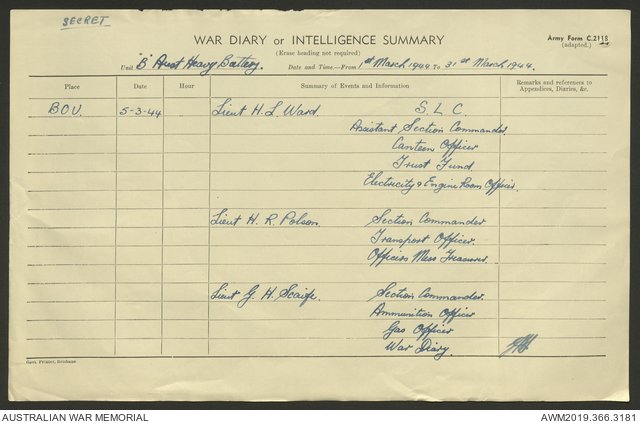 SECRET
WAR DIARY or INTELLIGENCE SUMMARY
Army Form C.2118
(adapted.)
(Erase heading not required)
Unit "B" Aust Heavy Battery.
Date and Time.—From 1st March 1944 to 31st March 1944.
Place Date Hour Summary of Events and Information Remarks and references to
Appendices, Diaries, &c.
B.O.U. 5-3-44 Lieut H. L. Ward S. L. C.
Assistant Section Commander
Canteen Officer
Trust Fund
Electricity & Engine Room Officer.
Lieut H. R. Polson Section Commander
Transport Officer
Officers Mess Treasurer
Lieut G. H. Scaife. Section Commander.
Ammunition Officer
Gas Officer
War Diary.
Govt. Printer, Brisbane
AUSTRALIAN WAR MEMORIAL
AWM2019.366.3181